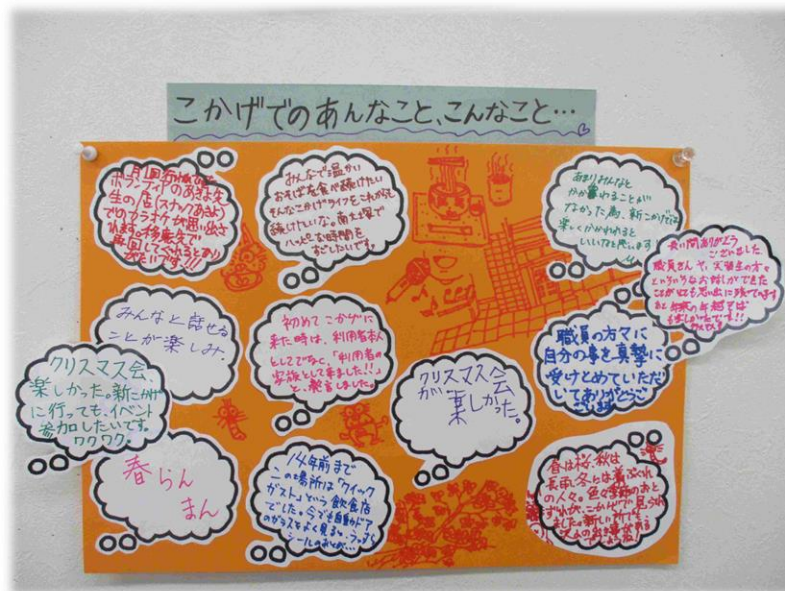 こかげでのあんなこと、こんなこと…
月1回行われていた
ボランティアのあきよ先
生の店(スナックあきよ)
でのカラオケが思い出さ
れます。移転先で
再開してくれるとあり
がたいです!!!
みんなで温かい
おそばを食べ続けたい
そんなこかげライフをこれからも
続けたいな。南大塚で
ハッピーな時間を
すごしたいです。
あまりみんなと
かか事わることが
なかった為、新こかげでは
楽しくかかわれると
いいなと思います
長い間ありがとう
ございました
職員さんや、実習生の方々
といろいろなお話しができた
ことがとても思い出に残ってます
みんなと話せる
ことが楽しみ
初めてこかげに
来た時は、利用者本人
としてでなく、「利用者の
家族として来ました!!」
と、発言しました。
職員の方々に
自分の事を真摯に
受けとめていただい
てありがとうご
ざいます
クリスマス会、
楽しかった。新こかげ
に行っても、イベント
参加したいです。
ワクワク。
クリスマス会
が一
楽しかった。
春らん
まん
14年前まで
この場所は「クイック
ガスト」という飲食店
でした。今でも自動ドア
のガラスをよく見ると、うっすら
シールのあとが…
春は桜、秋は
長雨、冬には着ぶくれ
の人々。色々季節のおと
ずれが、こかげで見られ
ました。新しい所でも